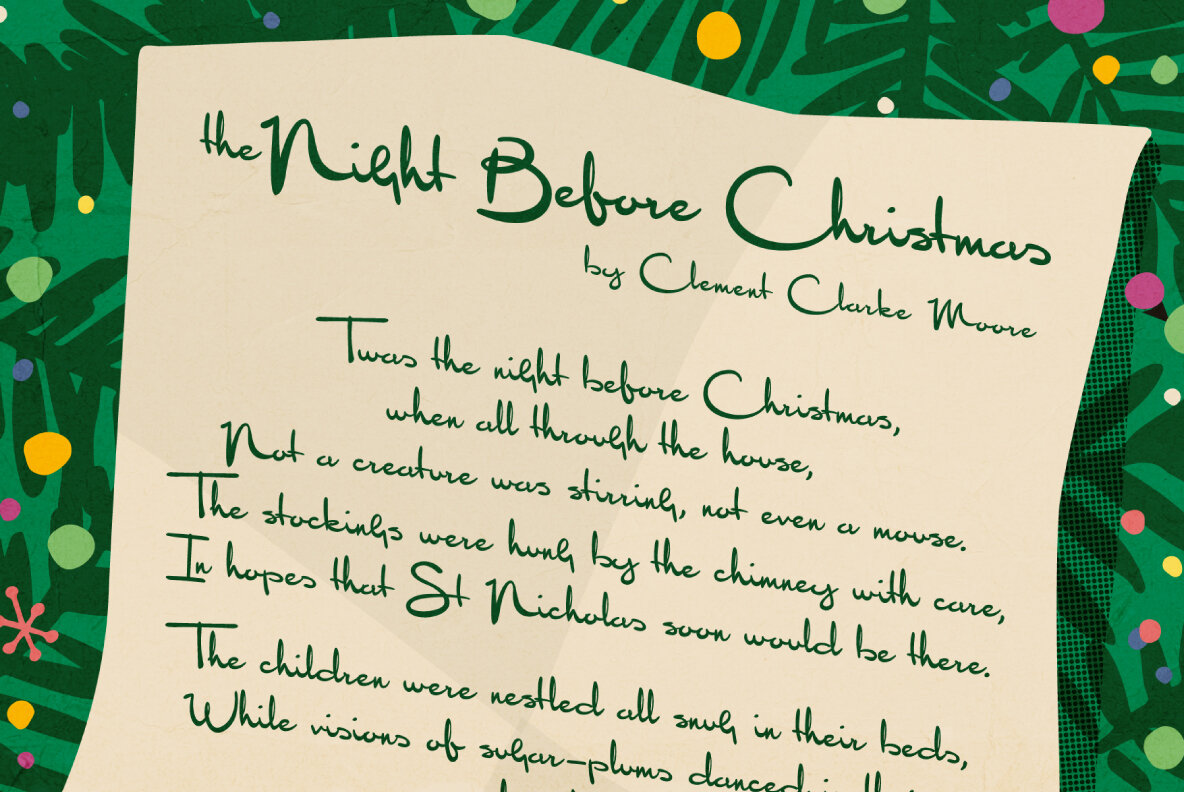 the Night Before Christmas
by Clement Clarke Moore
Twas the night before Christmas,
when all through the house,
Not a creature was stirring, not even a mouse.
The stockings were hung by the chimney with care,
In hopes that St Nicholas soon would be there.
The children were nestled all snug in their beds,
While visions of sugar-plums danced in